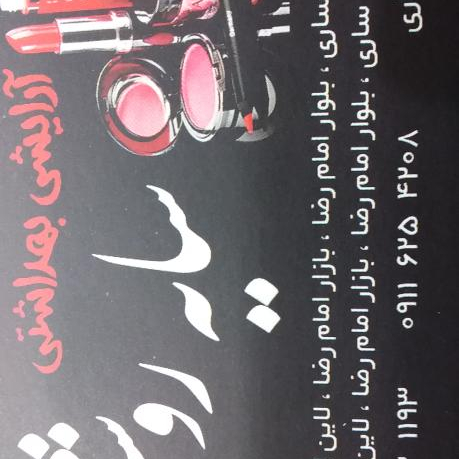 آرایشی بهداشتی
سایه روشن
ساری ، بلوار امام رضا ، بازار امام رضا ، لاین
ساری ، بلوار امام رضا ، بازار امام رضا ، لاین
۰۹۱۱ ۶۲۵ ۴۲۰۸
۱۱۹۳